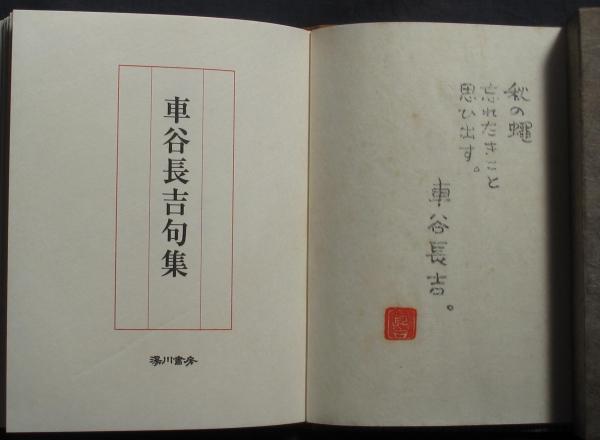 秋の蠅
忘れたきこと
思ひ出す。
車谷長吉。
長吉
車谷長吉句集
湯川書房